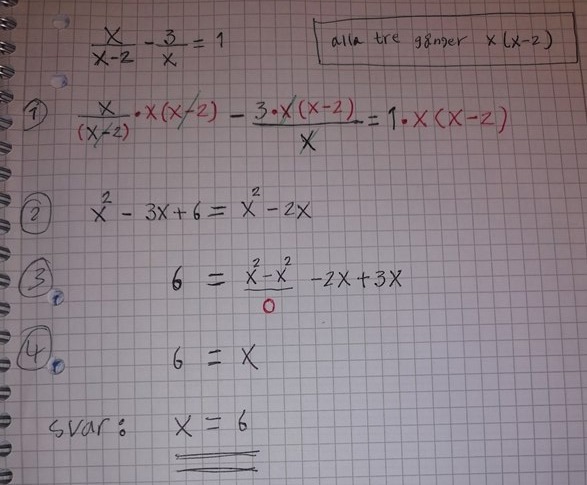 x/(x-2) - 3/x = 1
alla tre gånger x(x-2)
① x/(x-2) • x(x-2) - 3•x(x-2)/x = 1•x(x-2)
② x² - 3x + 6 = x² - 2x
③ 6 = x² - x² - 2x + 3x
0
④ 6 = x
svar: x = 6